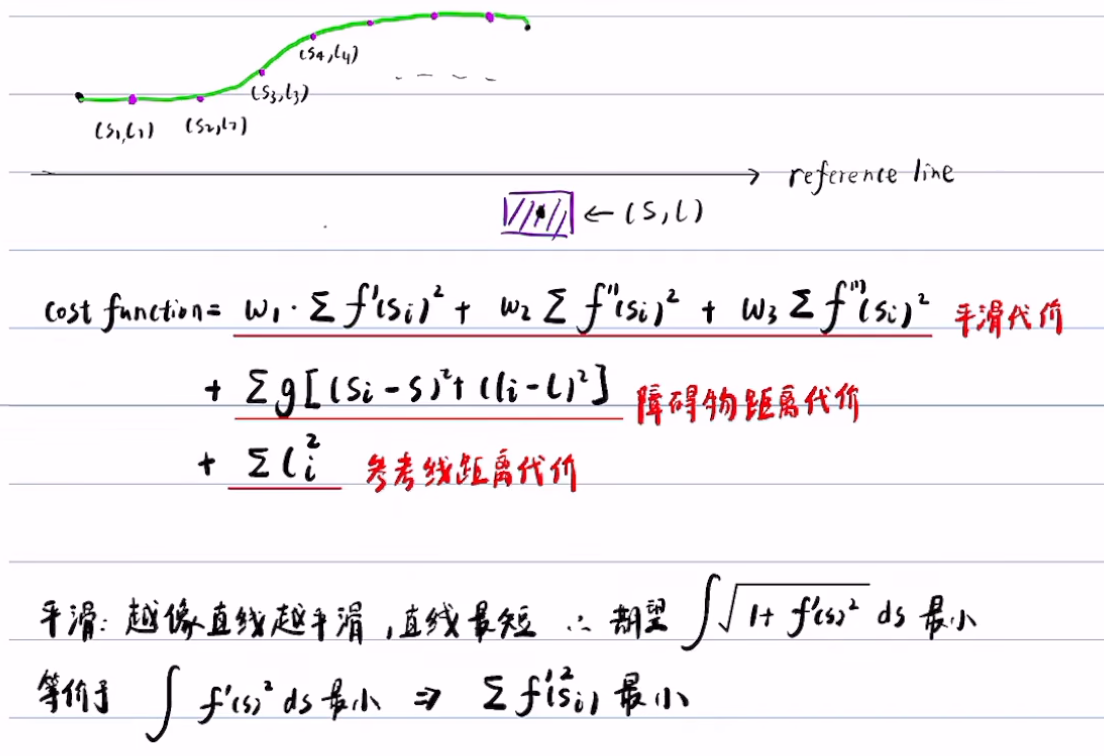 (s₄,l₄)
(s₃,l₃)
(s₁,l₁) (s₂,l₂)
reference line
← (s,l)
cost function = w₁·Σ f'(sᵢ)² + w₂ Σ f''(sᵢ)² + w₃ Σ f'''(sᵢ)² 平滑代价
+ Σg[(sᵢ-s)²+(lᵢ-l)²] 障碍物距离代价
+ Σlᵢ² 参考线距离代价
平滑：越像直线越平滑，直线最短 ∴ 期望 ∫√(1+f'(s)²) ds 最小
等价于 ∫ f'(s)² ds 最小 ⇒ Σ f'²(sᵢ) 最小